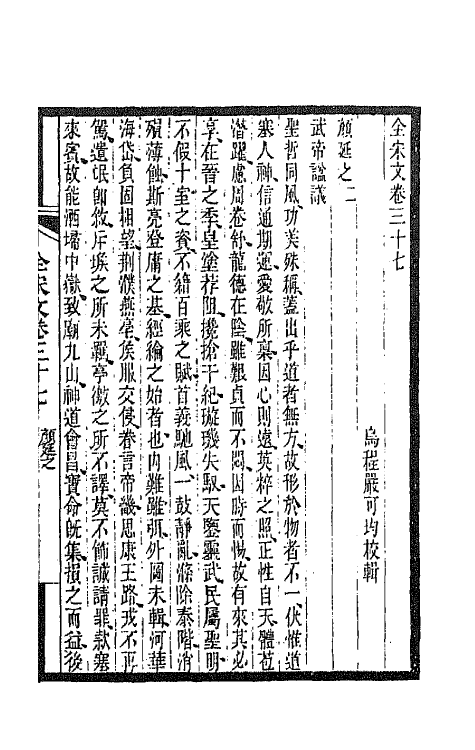 全宋文卷三十七
烏程嚴可均校輯
顏延之二
武帝謚議
聖哲同風功美殊稱蓋出乎道者無方故移於物者不一伏惟道
塞人神信通期運愛敬所稟因心則遠英梓之照正性自天體茲
潛躍慮周卷舒龍德在陰雖艱貞而不悶因時而惕故有來其必
享在晉之季皇塗荐阻攙搶干紀璇璣失馭天鑒靈武民屬聖明
不假十室之資不籍百乘之賦首義馳風一鼓靜亂滌除泰階消
殞薄蝕斯亮登庸之基經綸之始者也內難雖弭外圖未輯河華
海岱負固相望荊濮燕亳侯服交侵眷言帝畿思康王路戎不再
駕遺氓卽敘斥堠之所未羈亭徼之所不譯莫不飾誠請罪款塞
來賓故能洒埽中嶽致廟九山神道會昌寶命旣集損之而益後
全宋文卷三十七
顏延之